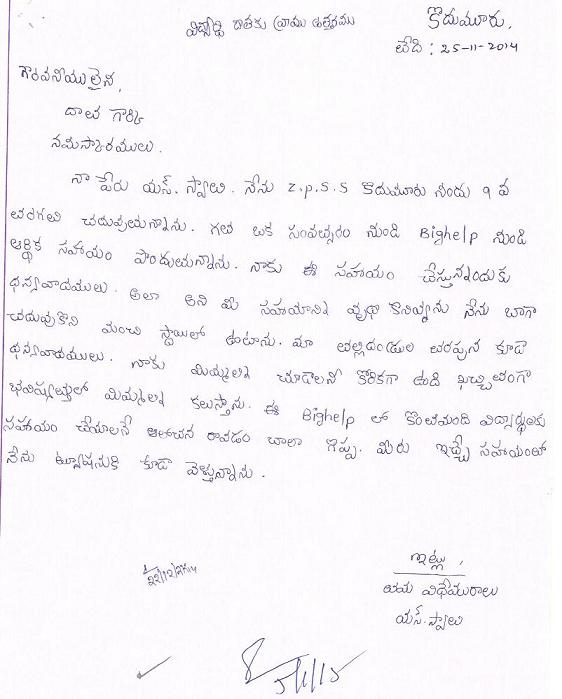 విద్యార్థి దాతకు వ్రాయు ఉత్తరము
కొడుమూరు,
తేది : 25-11-2014
గౌరవనీయులైన,
దాత గారికి
నమస్కారములు.
నా పేరు యస్. స్వాతి. నేను Z.P.S.S కొడుమూరు నందు 9 వ
తరగతి చదువుతున్నాను. గత ఒక సంవత్సరం నుండి Bighelp నుండి
ఆర్థిక సహాయం పొందుతున్నాను. నాకు ఈ సహాయం చేస్తున్నందుకు
ధన్యవాదములు. అలా అని మీ సహాయాన్ని వృథా కానివ్వను నేను బాగా
చదువుకొని మంచి స్థాయిలో ఉంటాను. మా తల్లిదండ్రుల తరపున కూడా
ధన్యవాదములు. నాకు మిమ్మల్ని చూడాలని కోరికగా ఉంది ఖచ్చితంగా
భవిష్యత్తులో మిమ్మల్ని కలుస్తాను. ఈ Bighelp లో కొంతమంది విద్యార్థులకు
సహాయం చేయాలనే ఆలోచన రావడం చాలా గొప్ప. మీరు ఇచ్చే సహాయంతో
నేను ట్యూషనుకి కూడా వెళ్తున్నాను.
ఇట్లు,
తమ విధేయురాలు
యస్. స్వాతి
22/12/2014
5/1/15